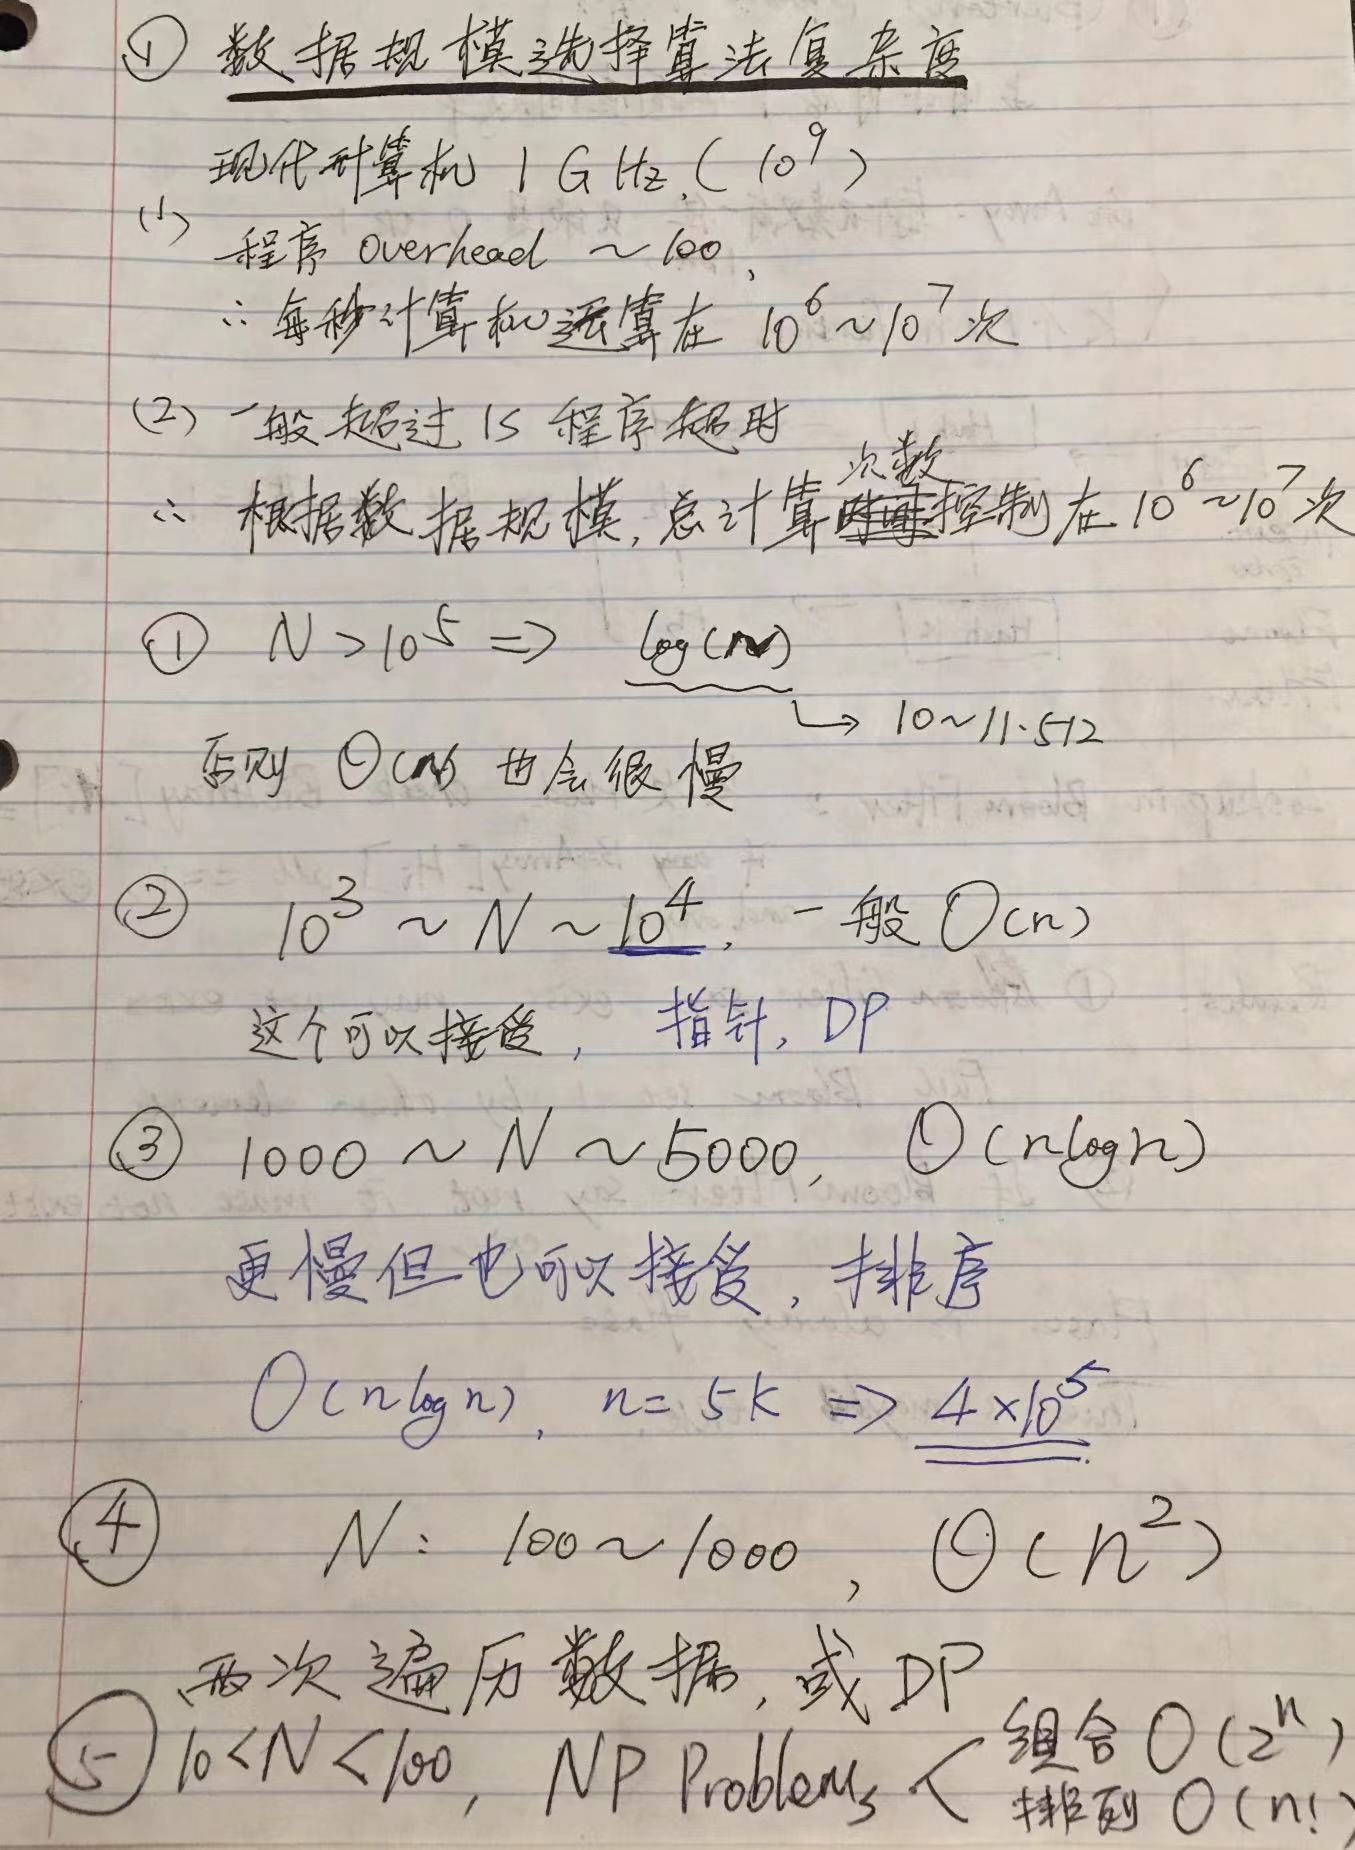 ① 数据规模选择算法复杂度
现代计算机 1 GHz, (10⁹)
(1) 程序 overhead ~ 100,
∴ 每秒计算机运算在 10⁶~10⁷ 次
(2) 一般超过 1s 程序超时
∴ 根据数据规模, 总计算次数控制在 10⁶~10⁷ 次
① N > 10⁵ => log(N)
↳ 10~11.512
否则 O(n) 也会很慢
② 10³ ~ N ~ 10⁴, 一般 O(n)
这个可以接受, 指针, DP
③ 1000 ~ N ~ 5000, O(nlogn)
更慢但也可以接受, 排序
O(nlogn), n= 5K => 4×10⁵
④ N: 100~1000, O(n²)
两次遍历数据, 或 DP
⑤ 10<N<100, NP Problems < 组合 O(2ⁿ)
排列 O(n!)